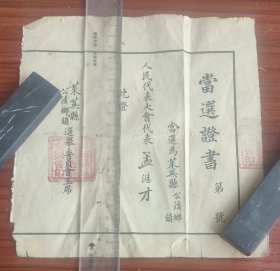 當選證書
第 號
當選為萊蕪縣公清鄉鎮
人民代表大會代表
孟繼才
此證
萊蕪縣
公清鄉鎮選舉委員會主席